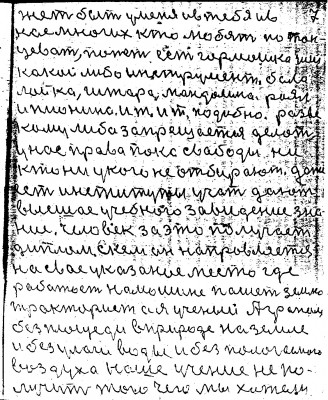 жет быт у меня и в тебя и в 7
нас много их кто любят по тан
цеват, поют ест гармошка или
какой либо инструмент. бала
лайка, гитара, мандолина. роял
и пионино. и.т. и т. подобно. разве
кому либо запрещается делат
у нас права пока свабоды ни
кто ни у кого не отбирают. дают
ест институты учат дают
высшае учебного заведение зна
ние. человек за это получает
диплом, с кем он направляется
на свае указаное место где
работает на машине пашет землю
тракторист а я ученый Агроном
без площеди в природе на земле
и без улаги воды и без полагаемого
воздуха наше учение не по-
лучит того чего мы хатели